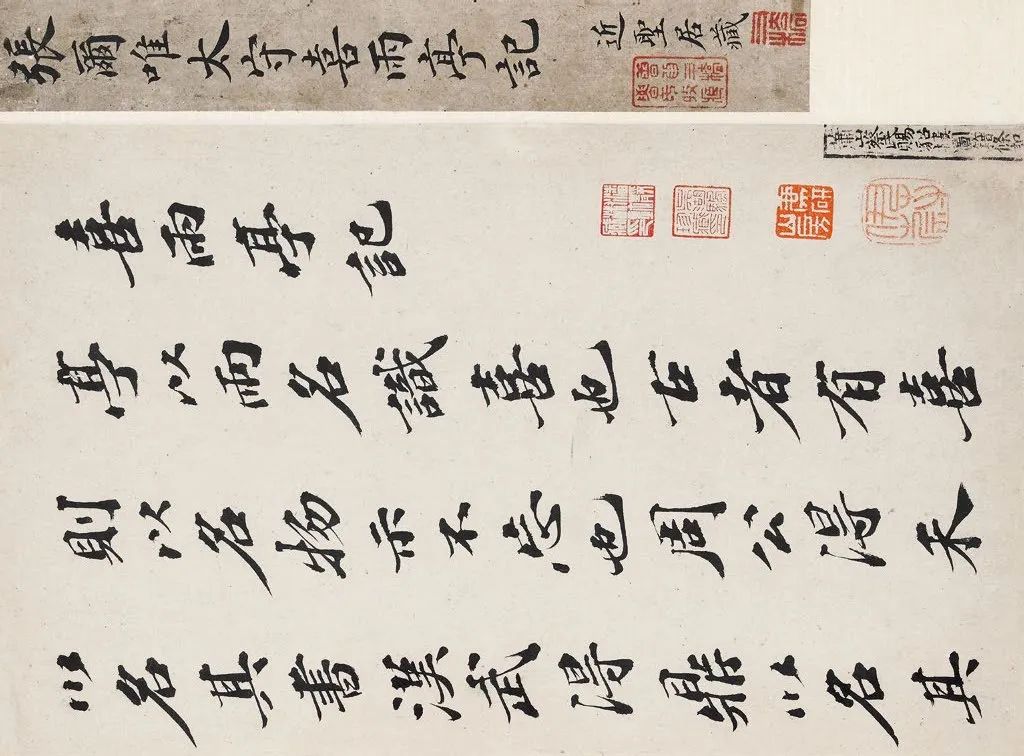 張爾唯太守喜雨亭記
近聖居藏
喜雨亭記
亭以雨名識喜也古者有喜
則以名物示不忘也周公得禾
以名其書漢武得鼎以名其